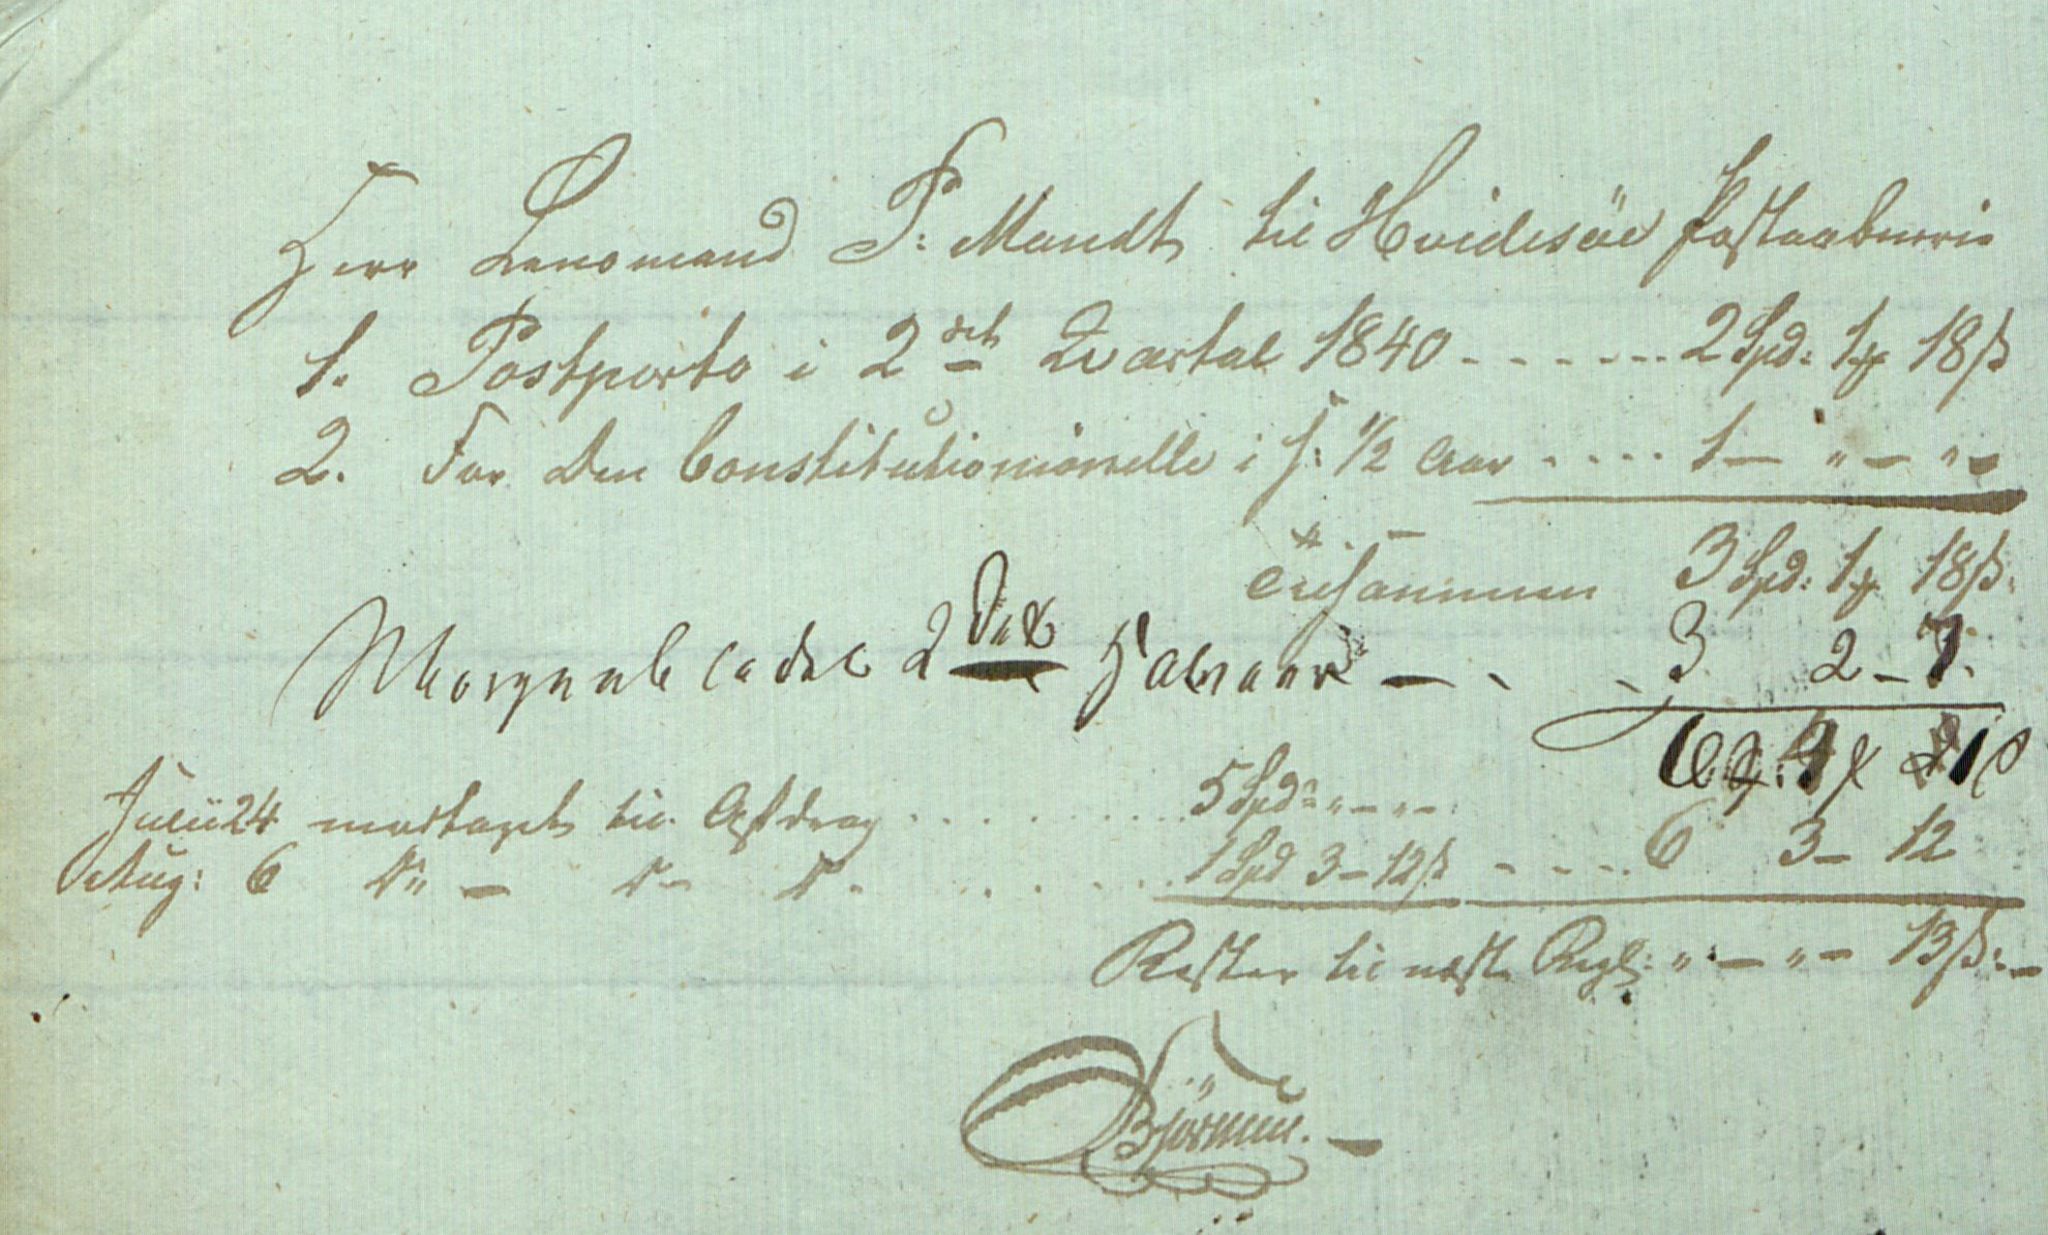 Herr Lensmand P: Mandt til Hvidesöe Postaabneri
1. Postporto i 2det Qvartal 1840 - - - - - - 2 Spd: 1 18 ß
2. For Den Constitutionönelle i f: 1/2 Aar - - - - 1 — " — " —
Tilsammen 3 Spd: 1 18 ß:
Morgenbladet 2det Halvaar — - - 3 2 - 7.
6 4 1 ß
Julii 24 modtaget til Afdrag . . . . . . . . . 5 Spd: " — " —
Aug: 6 Do — Do Do . . . . . 1 Spd 3 — 12 ß - - - - 6 3 — 12
Rester til næste Regl: " — " — 13 ß: —
Björnsen. —